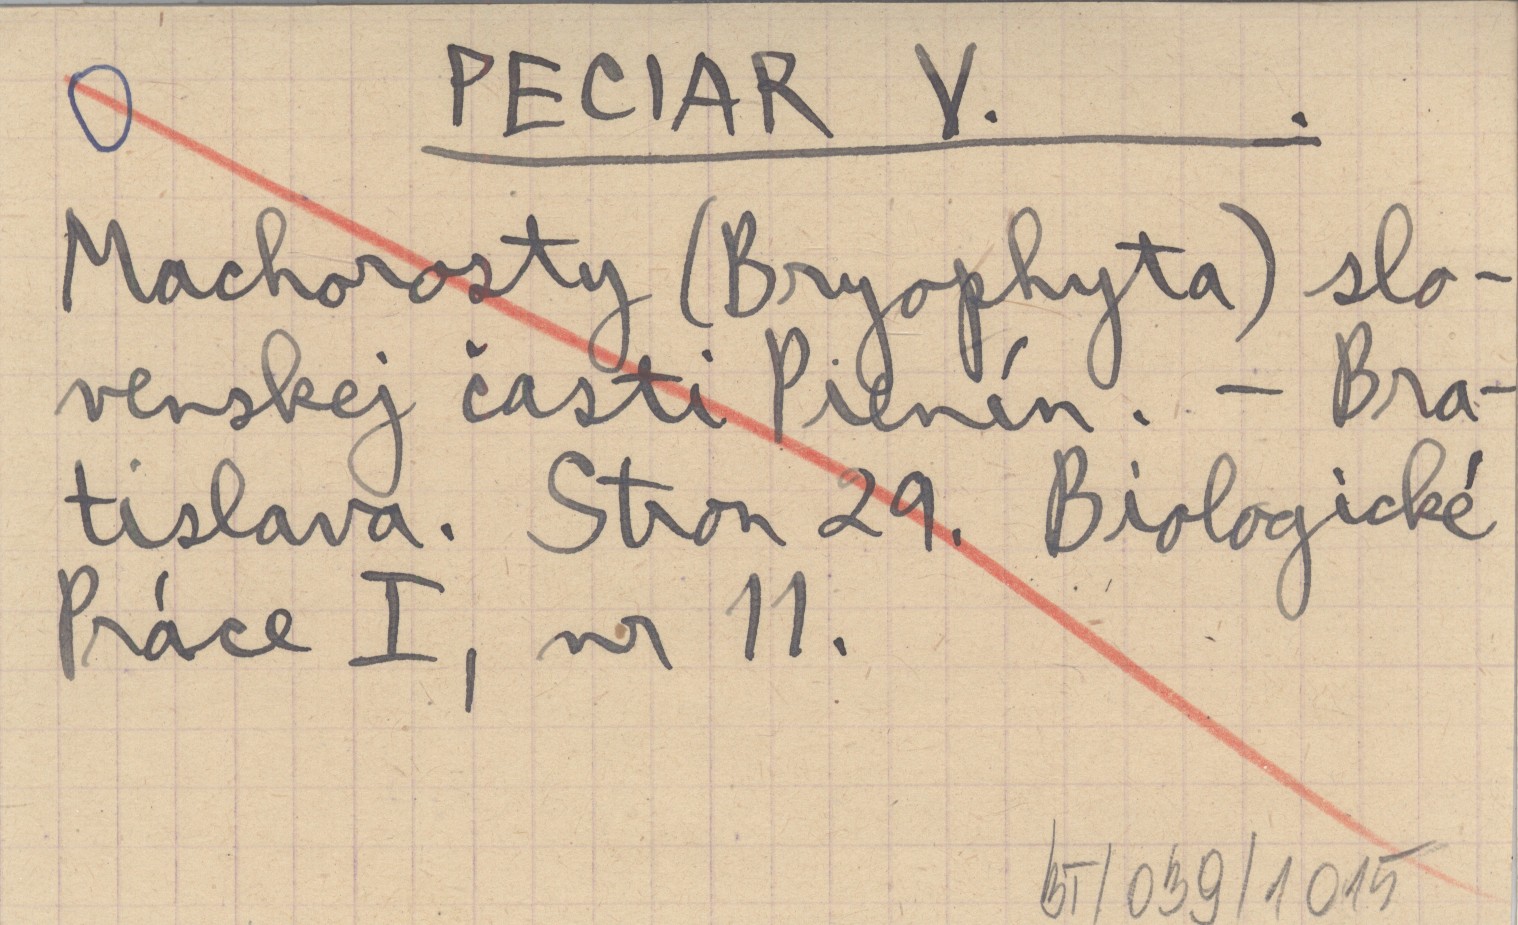 PECIAR V. .
Machorosty (Bryophyta) slo-
venskej časti Pienín. – Bra-
tislava. Stron 29. Biologické
Práce I, nr 11.
BT/039/1015